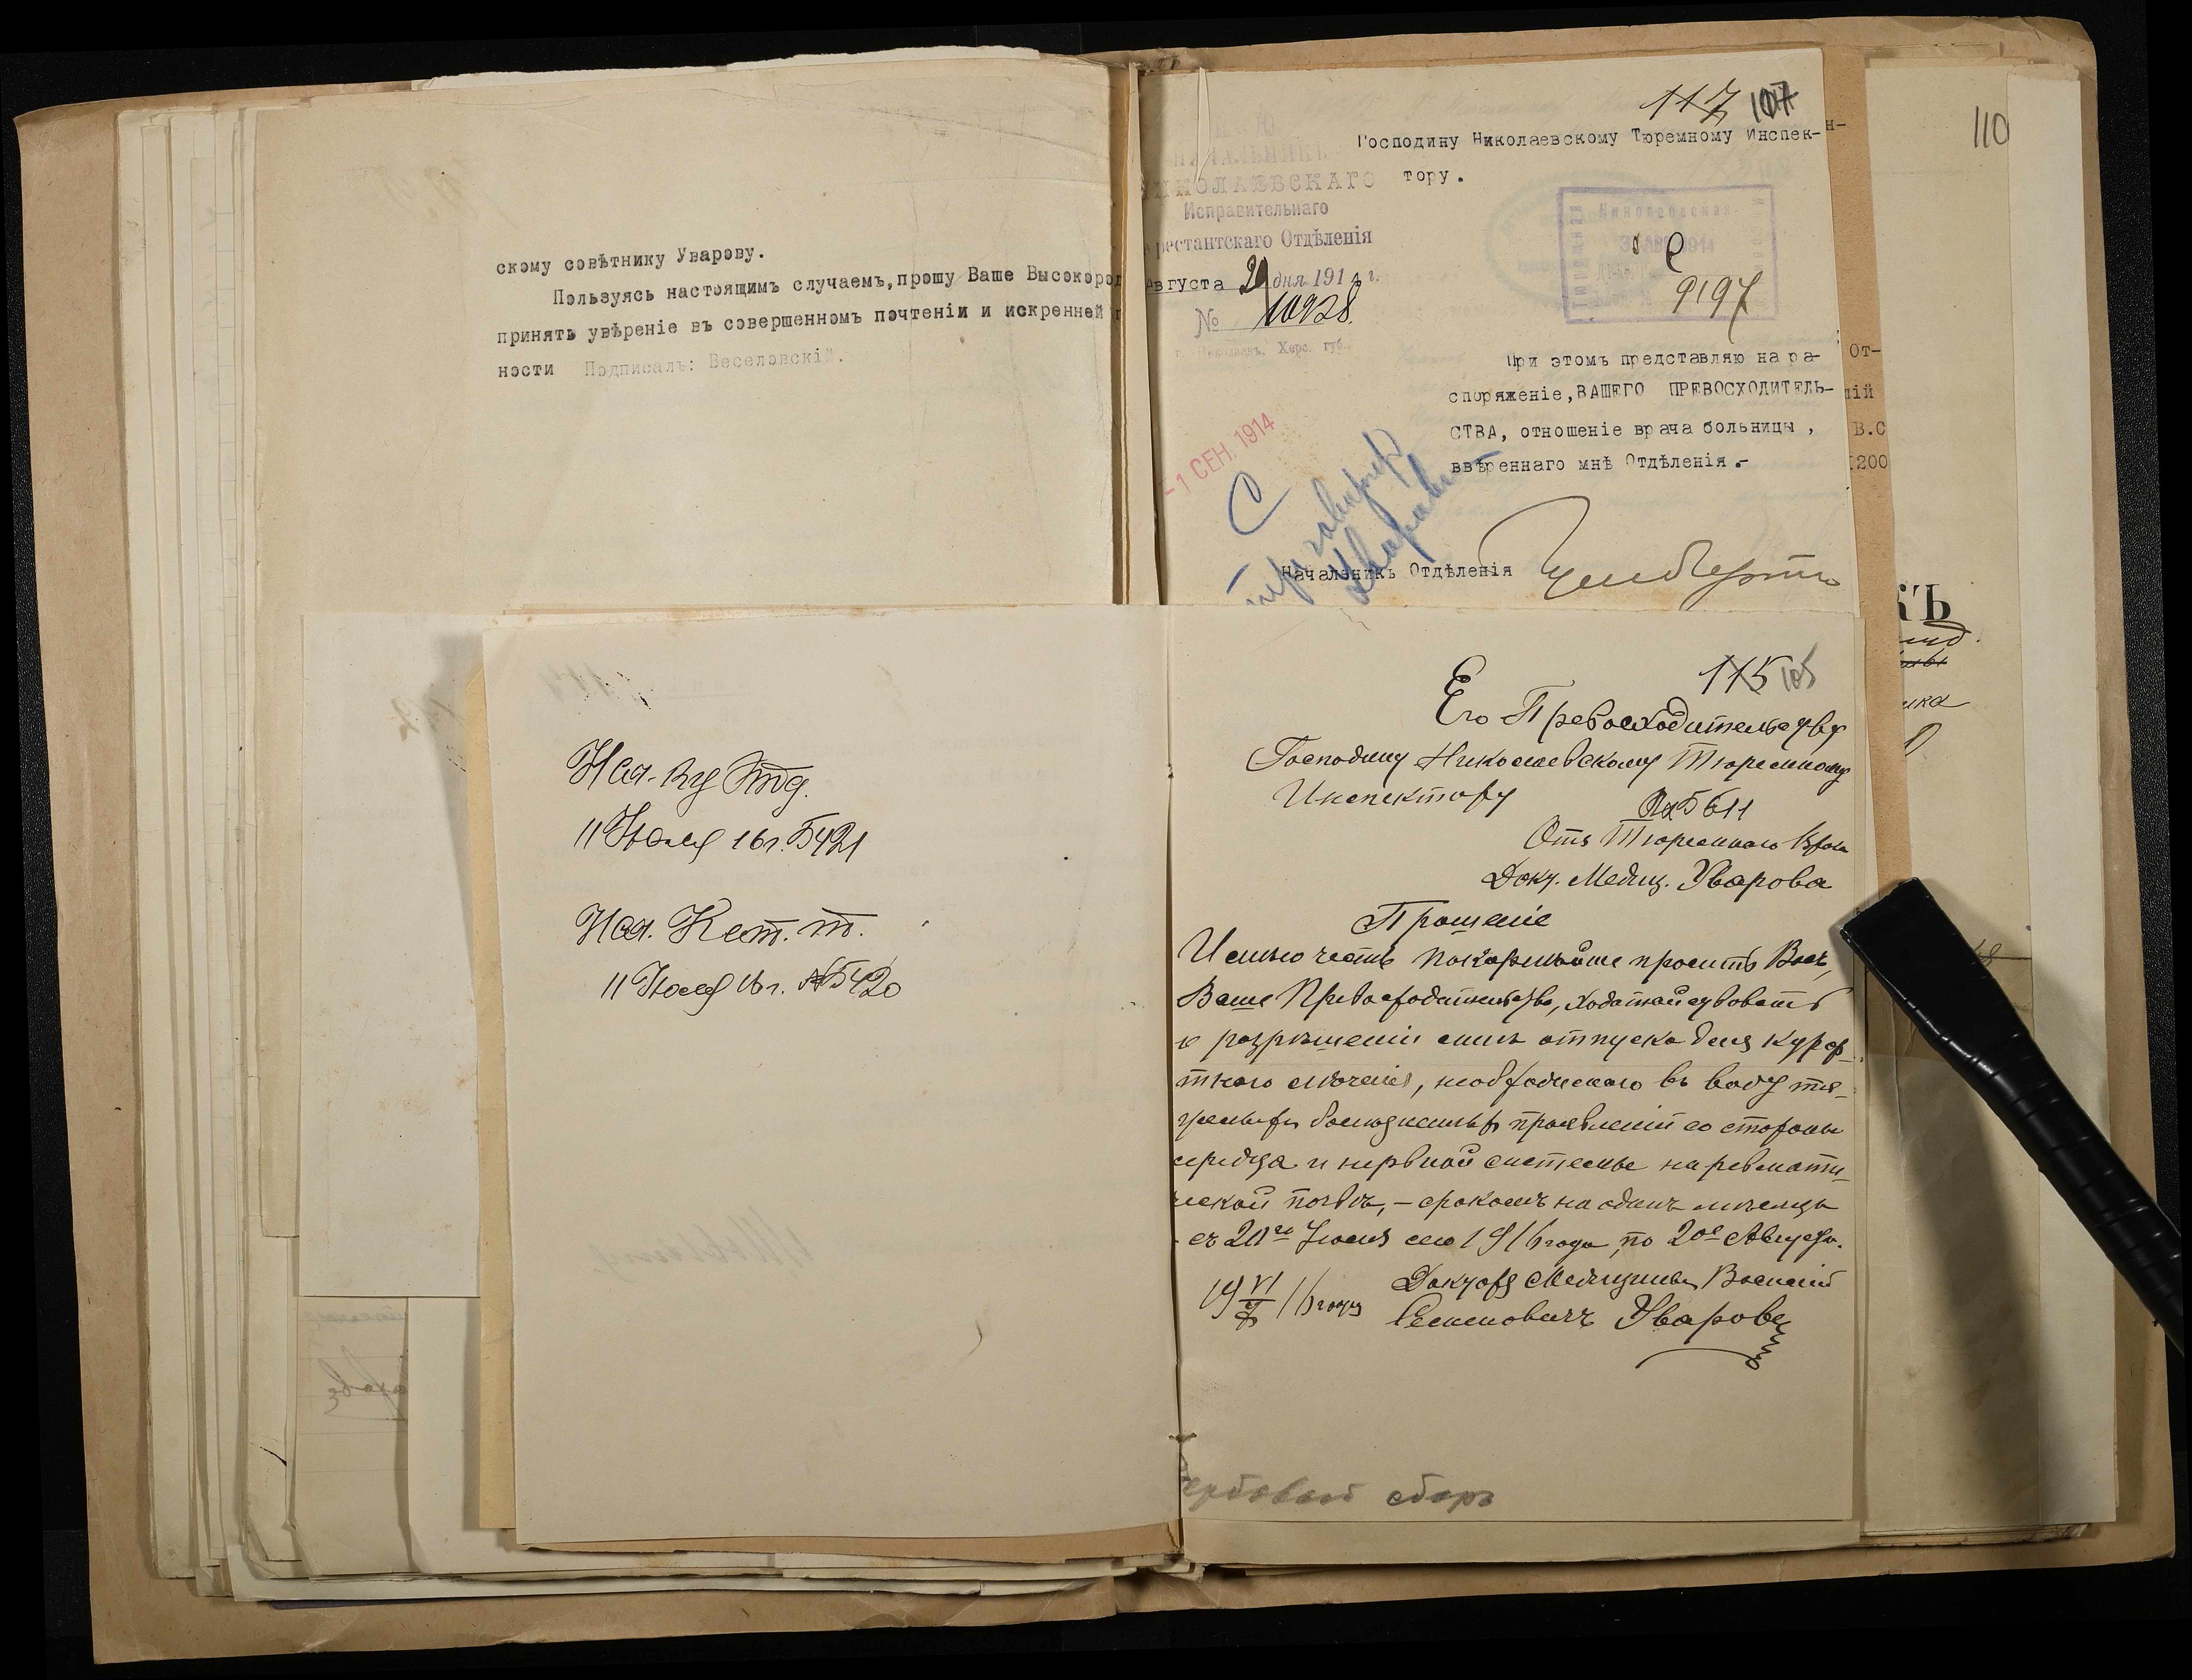 скому совѣтнику Уварову.
Пользуясь настоящимъ случаемъ,прошу Ваше Высокород
принять увѣреніе въ совершенномъ почтеніи и искренней
ности Подписалъ: Веселовскій.
117 107
Господину Николаевскому Тюремному Инспек-
тору.
НИКОЛАЕВСКАГО
Исправительнаго
Арестантскаго Отдѣленія
Августа 29 дня 1914 г.
№ 10928.
г. Николаевъ. Херс. губ.
Николаевская
1914
9197
При этомъ представляю на ра-
споряженіе,ВАШЕГО ПРЕВОСХОДИТЕЛЬ-
СТВА, отношеніе врача больницы ,
ввѣреннаго мнѣ Отдѣленія .-
- 1 СЕН. 1914
Начальникъ Отдѣленія
110
От-
ній
В.С
1200
КЪ
Нач-ку Отд.
11 Іюля 16 г. 5421
Нач. Кат. т.
11 Іюля 16 г. № 5420
115 105
Его Превосходительству
Господину Николаевскому Тюремному
Инспектору
5611
Отъ Тюремнаго Врача
Докт. Медиц. Уварова
Прошеніе
Имѣю честь покорнѣйше просить Васъ,
Ваше Превосходительство, ходатайствовать
о разрѣшеніи мнѣ отпуска для курор-
тнаго лѣченія, необходимаго въ виду тя-
желыхъ болѣзненныхъ проявленій со стороны
сердца и нервной системы на ревмати-
ческой почвѣ, – срокомъ на одинъ мѣсяцъ
съ 20го Іюля сего 1916 года по 20е Августа.
19 VI/7 16 года Докторъ Медицины Василій
Семеновичъ Уваровъ
сборъ